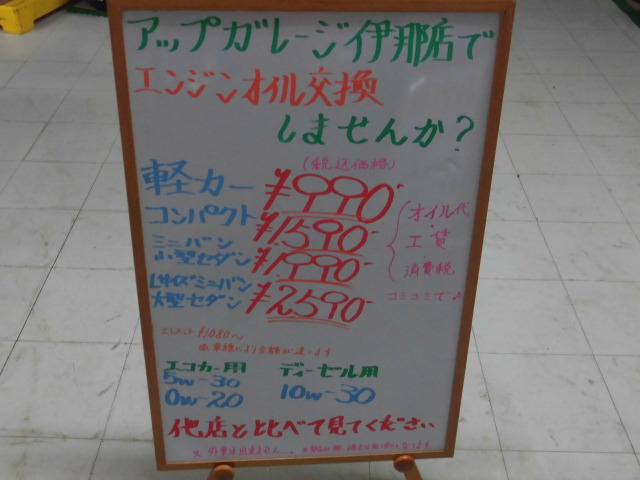 アップガレージ伊那店で
エンジンオイル交換
しませんか?
(税込価格)
軽カー ¥990-
コンパクト ¥1,590-
ミニバン
小型セダン ¥1,990-
Lサイズミニバン
大型セダン ¥2,590-
オイル代
・
工賃
・
消費税
コミコミで♪
エレメント ¥1080〜
車種により金額が違います
エコカー用
5w-30
0w-20
ディーゼル用
10w-30
他店と比べて見てください
※外車は出来ません...